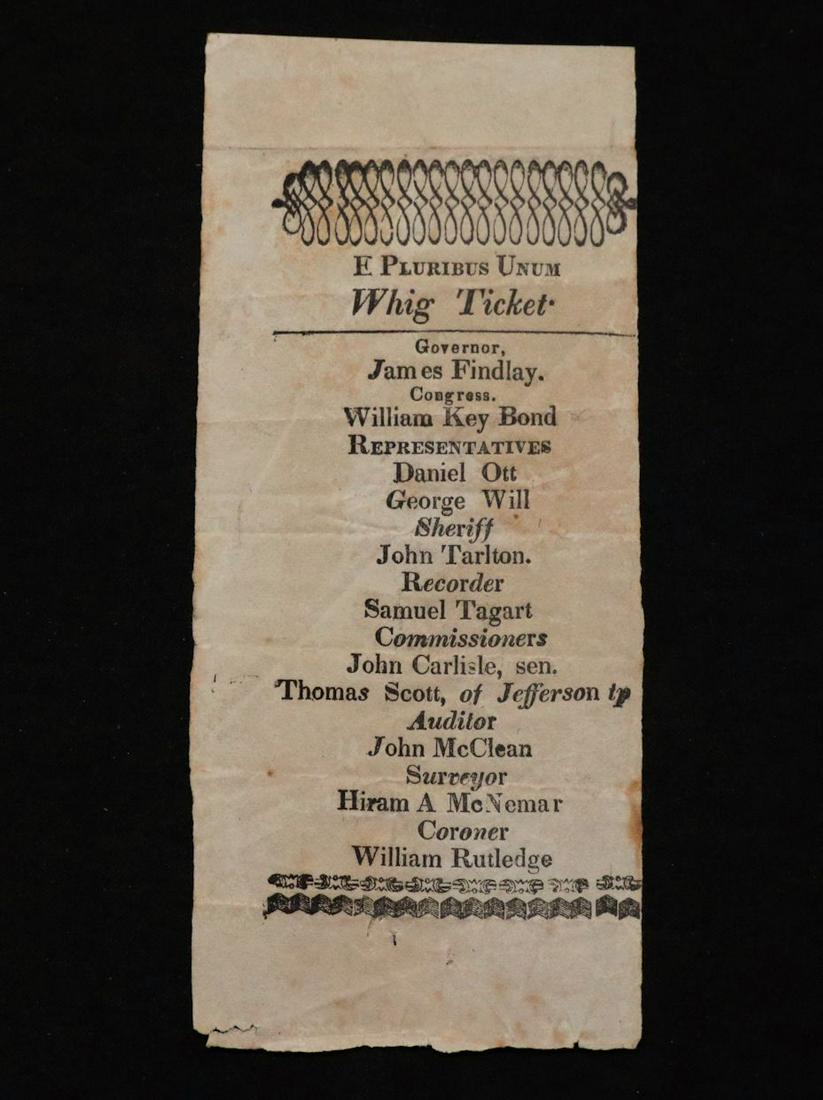 E PLURIBUS UNUM
Whig Ticket·
Governor,
James Findlay.
Congress.
William Key Bond
REPRESENTATIVES
Daniel Ott
George Will
Sheriff
John Tarlton.
Recorder
Samuel Tagart
Commissioners
John Carlisle, sen.
Thomas Scott, of Jefferson tp
Auditor
John McClean
Surveyor
Hiram A McNemar
Coroner
William Rutledge